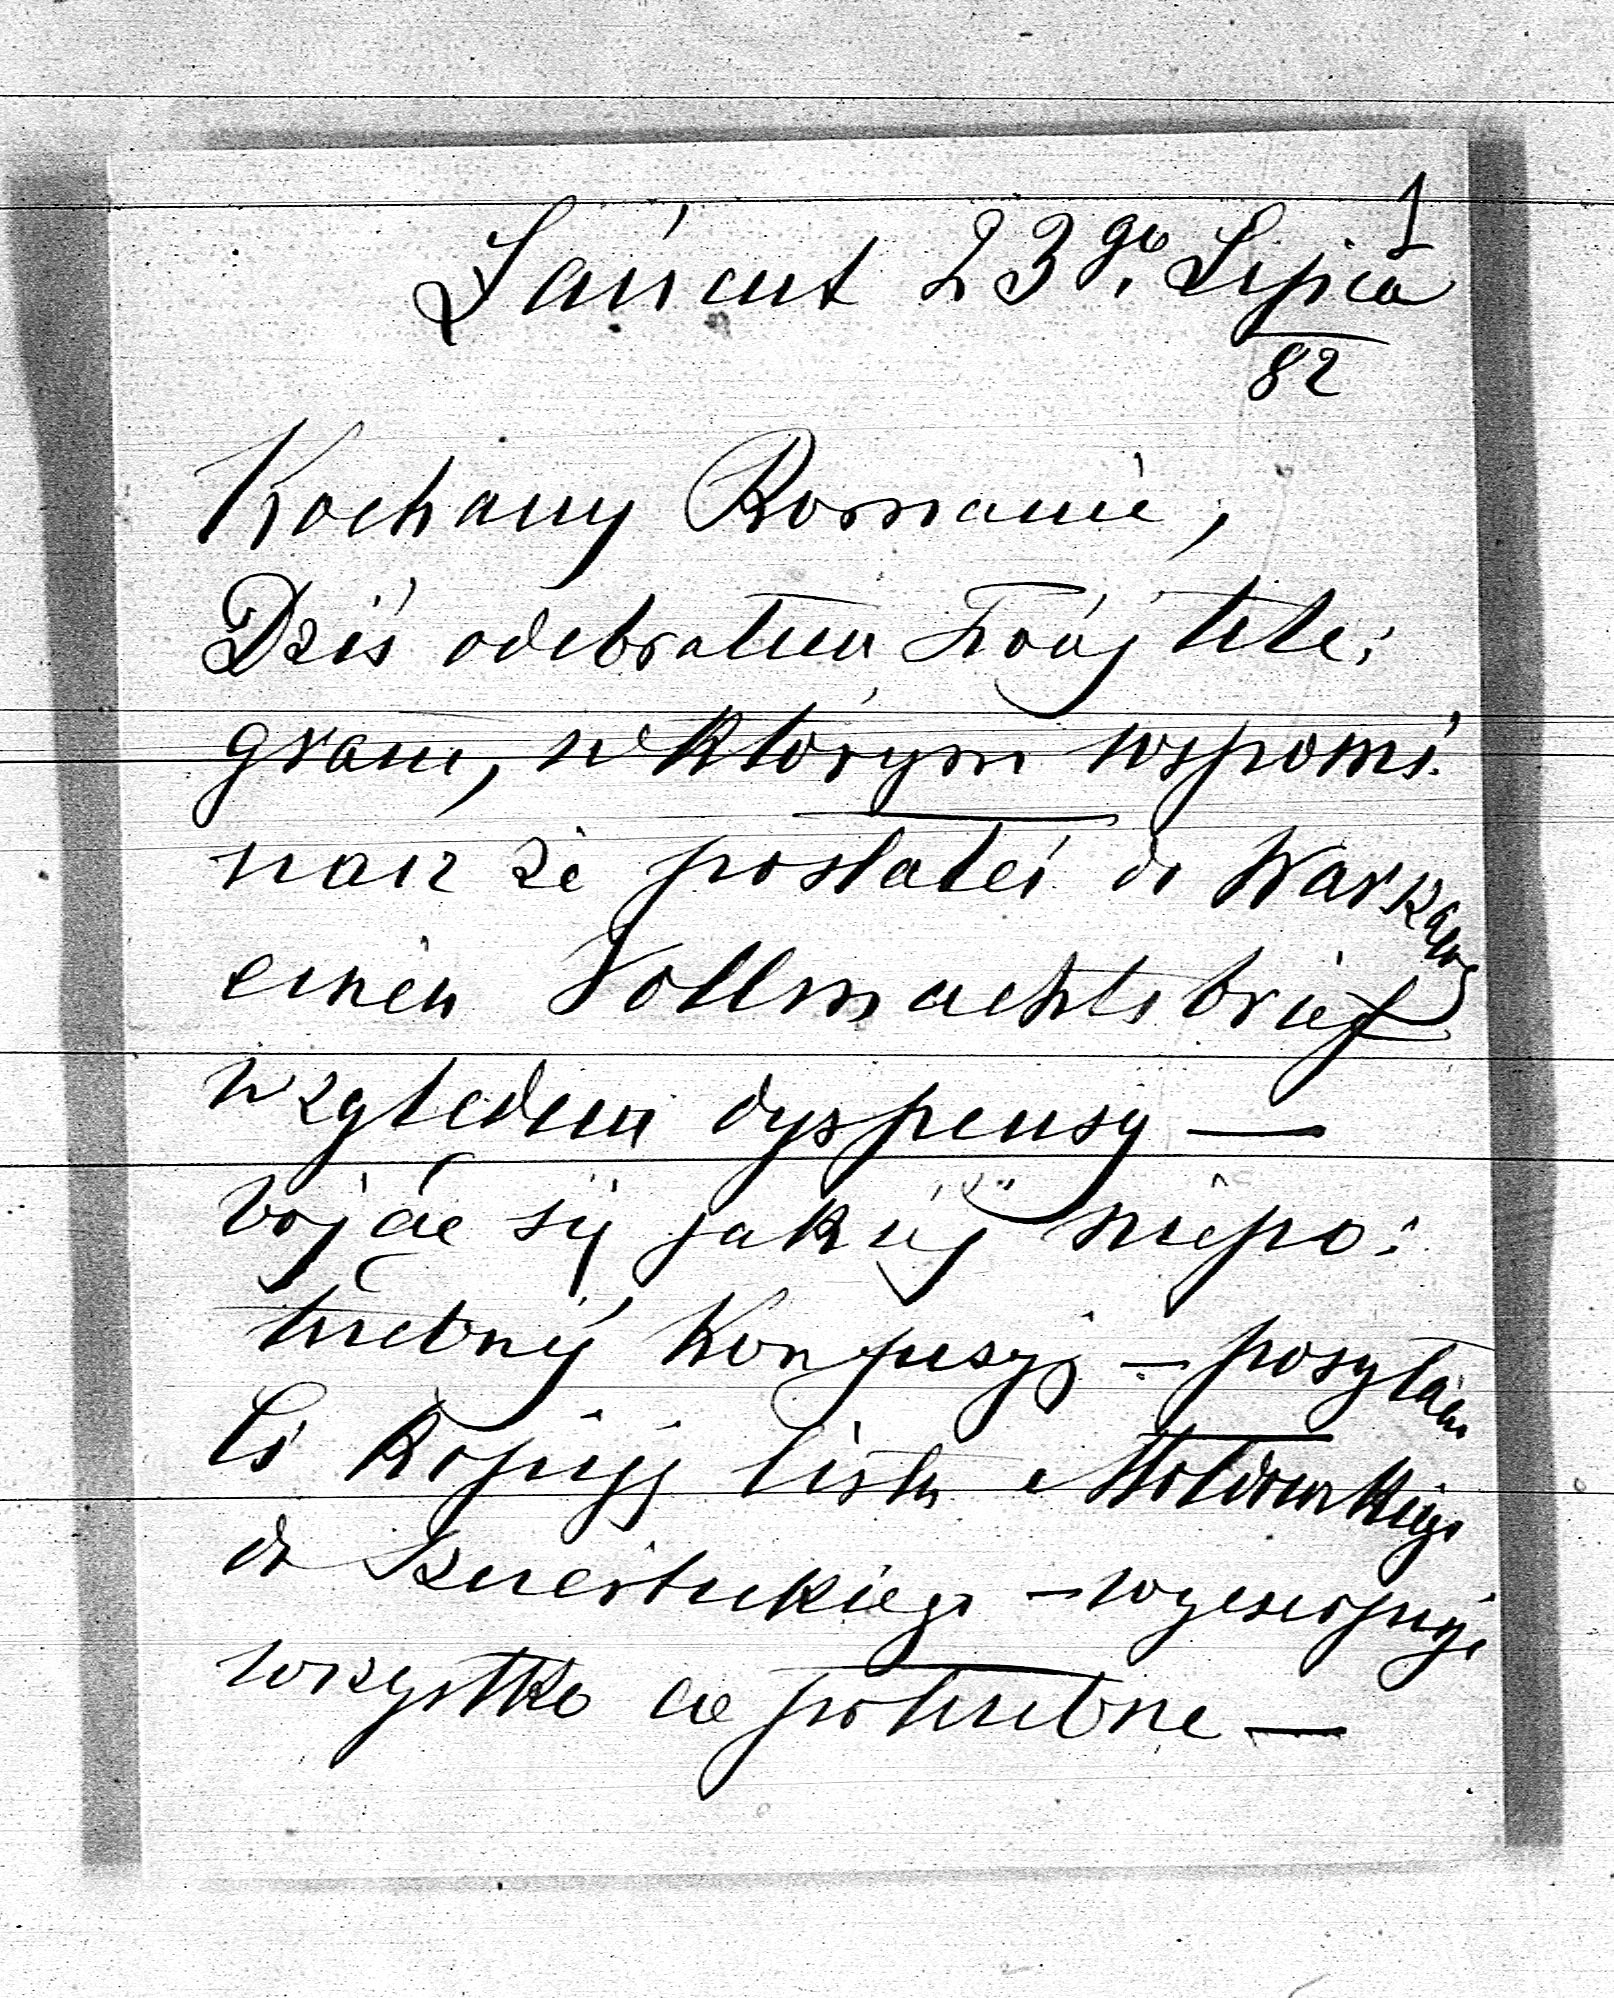 1
Łańcut 23go. Lipca
82
Kochany Romanie,
Dziś odebrałem Twój tele:
gram, w którym wspomi:
nasz że posłałeś do Warszawy
einen Vollmachtsbrief
względem dyspensy —
bojąc się jakiéj niepo:
trzebnéj konfusyi — posyłam
Ci kopiję listu
do — wyczerpuje
wszystko co potrzebne —